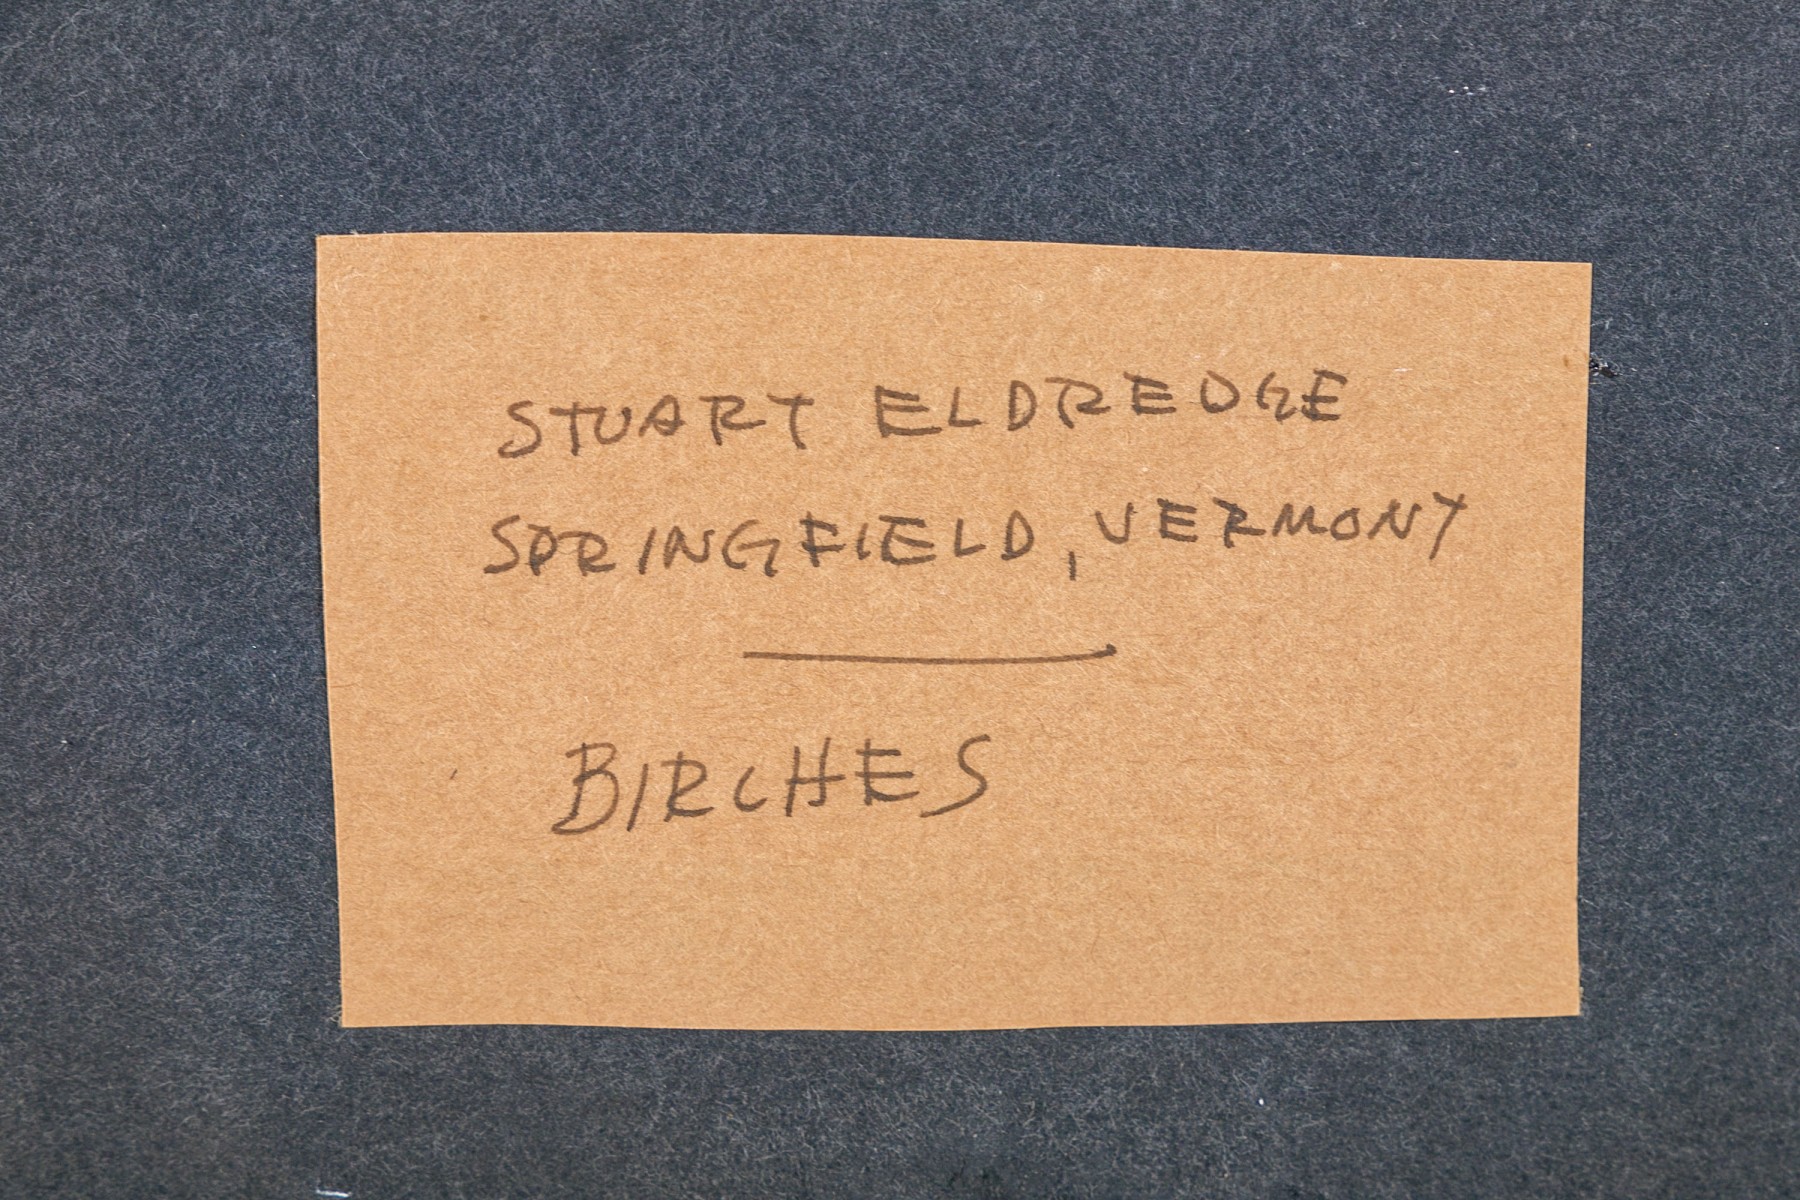 STUART ELDREDGE
SPRINGFIELD, VERMONT
BIRCHES